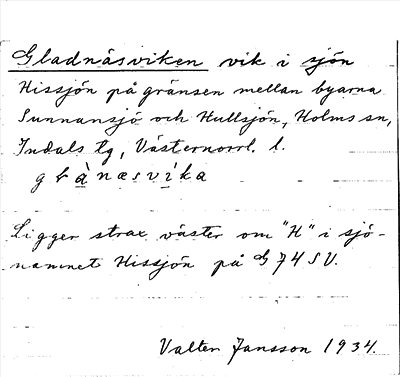 Gladnäsviken vik i sjön
Hissjön på gränsen mellan byarna
Sunnansjö och Hullsjön, Holms sn,
Indals tg, Västernorrl. l.
glànæsvika
Ligger strax väster om "H" i sjö-
namnet Hissjön på G74SV.
Valter Jansson 1934.